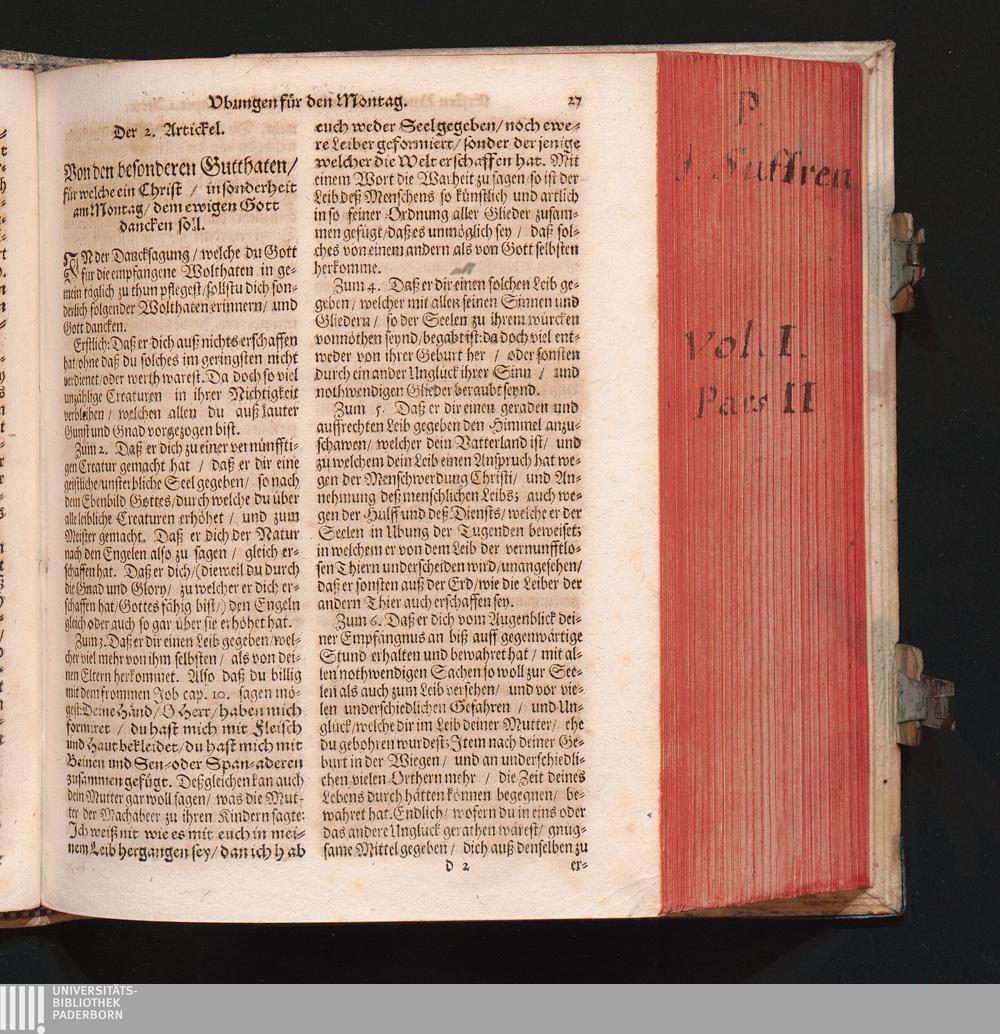 Vbungen für den Montag. 27
Der 2. Artickel.
Von den besonderen Gutthaten/
für welche ein Christ / insonderheit
am Montag/ dem ewigen Gott
dancken soll.
IN der Dancksagung / welche du Gott
für die empfangene Wolthaten in ge-
mein täglich zu thun pflegest/ sollstu dich son-
derlich folgender Wolthaten erinnern/ und
Gott dancken.
Erstlich: Daß er dich auß nichts erschaffen
hat/ohne daß du solches im geringsten nicht
verdienet/oder werth warest. Da doch so viel
unzählige Creaturen in ihrer Nichtigkeit
verbleiben / welchen allen du auß lauter
Gunst und Gnad vorgezogen bist.
Zum 2. Daß er dich zu einer vernünffti-
gen Creatur gemacht hat / daß er dir eine
geistliche/unsterbliche Seel gegeben/ so nach
dem Ebenbild Gottes/durch welche du über
alle leibliche Creaturen erhöhet / und zum
Meister gemacht. Daß er dich der Natur
nach den Engelen also zu sagen / gleich er-
schaffen hat. Daß er dich/ (dieweil du durch
die Gnad und Glory/ zu welcher er dich er-
schaffen hat/Gottes fähig bist/) den Engeln
gleich oder auch so gar über sie erhöhet hat.
Zum 3. Daß er dir einen Leib gegeben/wel-
cher viel mehr von ihm selbsten / als von dei-
nen Eltern herkommet. Also daß du billig
mit dem frommen Job cap. 10. sagen mö-
gest: Deine Händ/ O Herr/ haben mich
formiret / du hast mich mit Fleisch
und Haut bekleidet/du hast mich mit
Beinen und Sen-oder Span-aderen
zusammen gefügt. Deßgleichen kan auch
dein Mutter gar woll sagen/ was die Mut-
ter der Machabeer zu ihren Kindern sagte:
Ich weiß nit wie es mit euch in mei-
nem Leib hergangen sey/ dan ich hab
euch weder Seel gegeben/ noch ewe-
re Leiber geformiert/ sonder der jenige
welcher die Welt erschaffen hat. Mit
einem Wort die Warheit zu sagen/ so ist der
Leib deß Menschens so künstlich und artlich
in so feiner Ordnung aller Glieder zusam-
men gefügt/ daß es unmöglich sey / daß sol-
ches von einem andern als von Gott selbsten
herkomme.
Zum 4. Daß er dir einen solchen Leib ge-
geben/ welcher mit allen seinen Sinnen und
Gliedern / so der Seelen zu ihrem würcken
vonnöthen seynd/ begabt ist: da doch viel ent-
weder von ihrer Geburt her / oder sonsten
durch ein ander Unglück ihrer Sinn / und
nothwendigen Glieder beraubt seynd.
Zum 5. Daß er dir einen geraden und
auffrechten Leib gegeben den Himmel anzu-
schawen/ welcher dein Vatterland ist/ und
zu welchem dein Leib einen Anspruch hat we-
gen der Menschwerdung Christi/ und An-
nehmung deß menschlichen Leibs; auch we-
gen der Hülff und deß Diensts/ welche er der
Seelen in Ubung der Tugenden beweiset;
in welchem er von dem Leib der vernunfftlo-
sen Thiern underscheiden wird/ unangesehen/
daß er sonsten auß der Erd/ wie die Leiber der
andern Thier auch erschaffen sey.
Zum 6. Daß er dich vom Augenblick dei-
ner Empfängnus an biß auff gegenwärtige
Stund erhalten und bewahret hat / mit al-
len nothwendigen Sachen so woll zur See-
len als auch zum Leib versehen/ und vor vie-
len underschiedlichen Gefahren / und Un-
glück/ welche dir im Leib deiner Mutter/ ehe
du gebohren wurdest; Item nach deiner Ge-
burt in der Wiegen / und an underschiedli-
chen vielen Orthern mehr / die Zeit deines
Lebens durch hätten können begegnen/ be-
wahret hat. Endlich/ wofern du in eins oder
das andere Unglück gerathen wärest/ gnug-
same Mittel gegeben / dich auß denselben zu
D 2 er-
P.
J. Suffren
Vol. I.
Pars II
UNIVERSITÄTS-
BIBLIOTHEK
PADERBORN